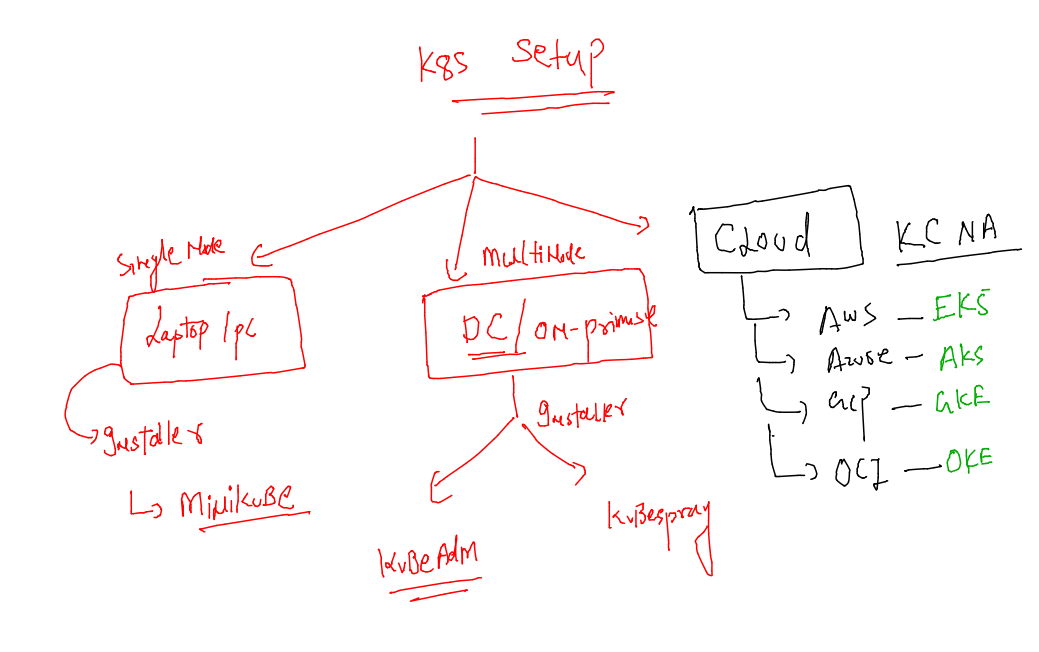 K8S Setup
Single Node
Laptop / PC
Installer
MiniKuBe
MultiNode
DC / ON-primise
Installer
KuBeAdM
KuBespray
Cloud
KCNA
AWS - EKS
Azure - AKS
GCP - GKE
OCI - OKE